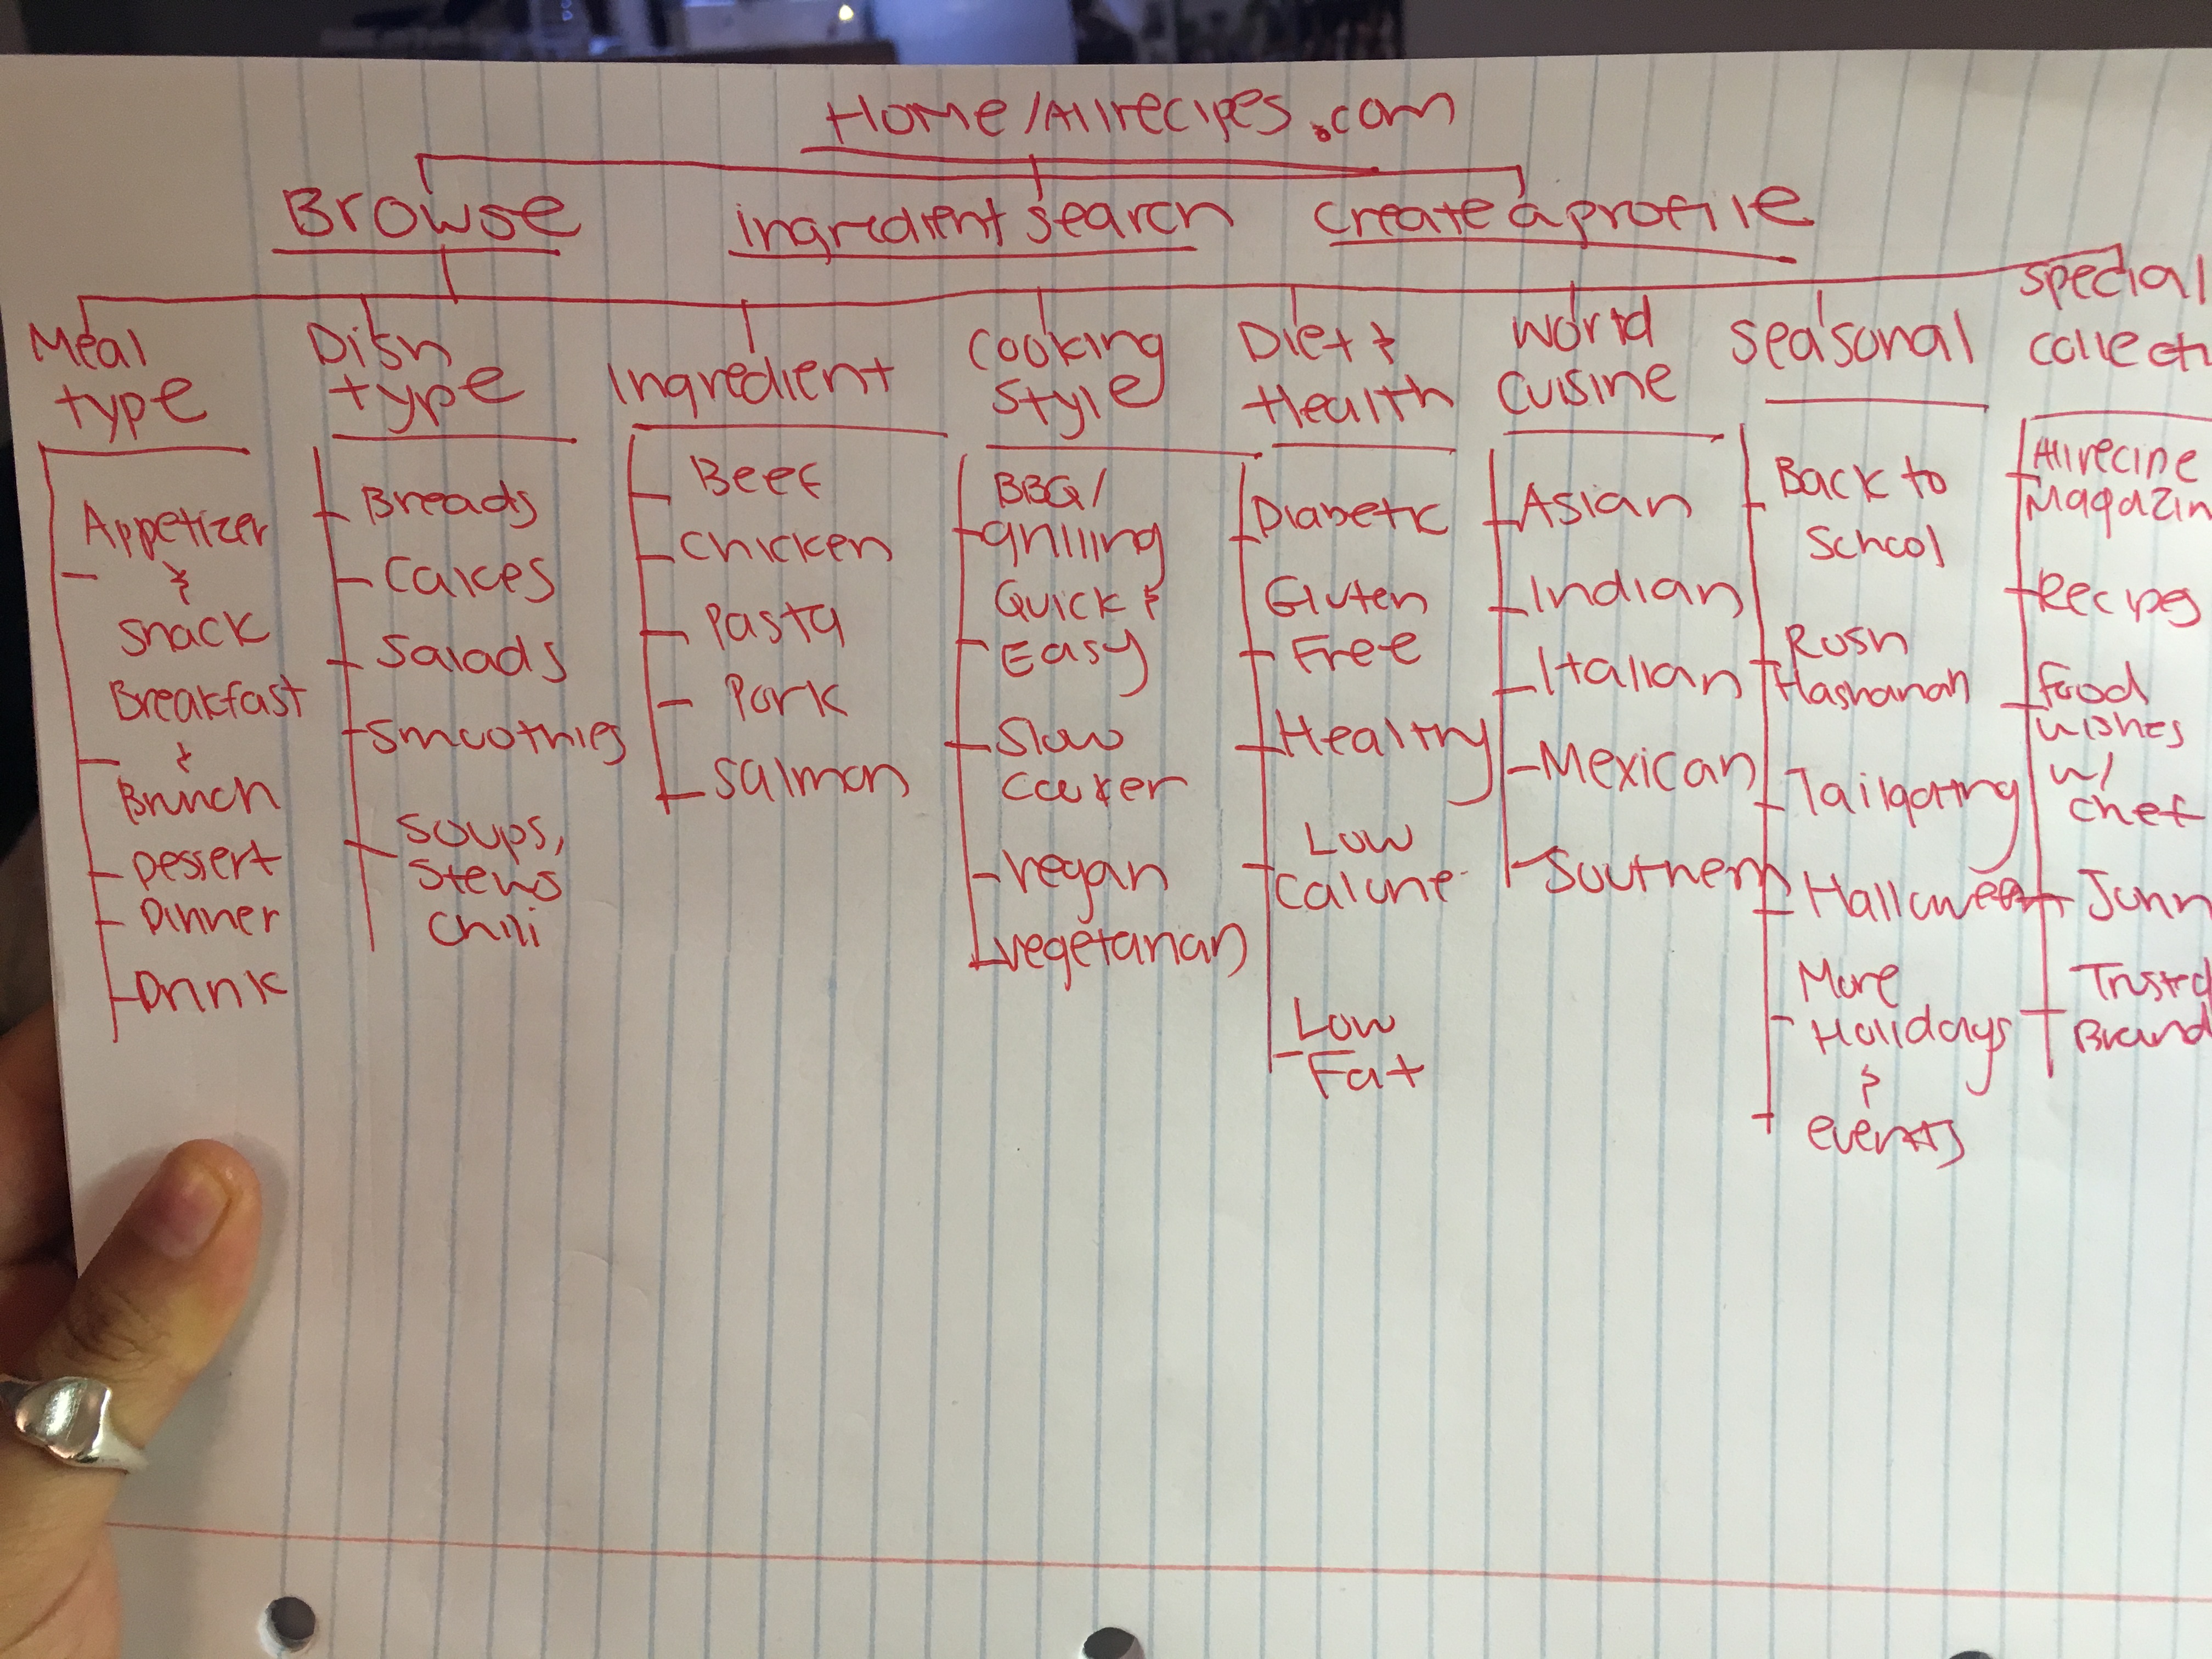 Home/Allrecipes.com
Browse
ingredient search
create a profile
Meal
type
Appetizer
&
snack
Breakfast
&
Brunch
Dessert
Dinner
Drink
Dish
type
Breads
Cakes
Salads
Smoothies
Soups,
Stews
Chili
Ingredient
Beef
Chicken
Pasta
Pork
Salmon
Cooking
Style
BBQ/
grilling
Quick &
Easy
Slow
Cooker
vegan
vegetarian
Diet &
Health
Diabetic
Gluten
Free
Healthy
Low
Calorie
Low
Fat
World
Cuisine
Asian
Indian
Italian
Mexican
Southern
Seasonal
Back to
School
Rosh
Hashanah
Tailgating
Halloween
More
Holidays
&
events
special
collecti
Allrecipe
Magazin
Recipes
Food
wishes
w/
Chef
John
Trusted
Brand